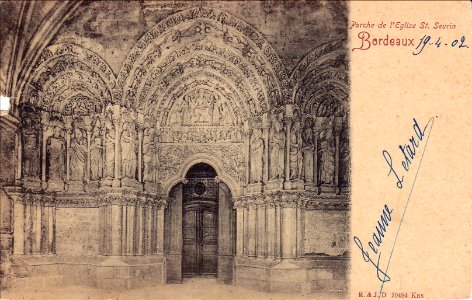 Porche de l'Eglise St. Seurin
Bordeaux 19-4-02
Jeanne Letard
R. & J. D. 10484 Kns